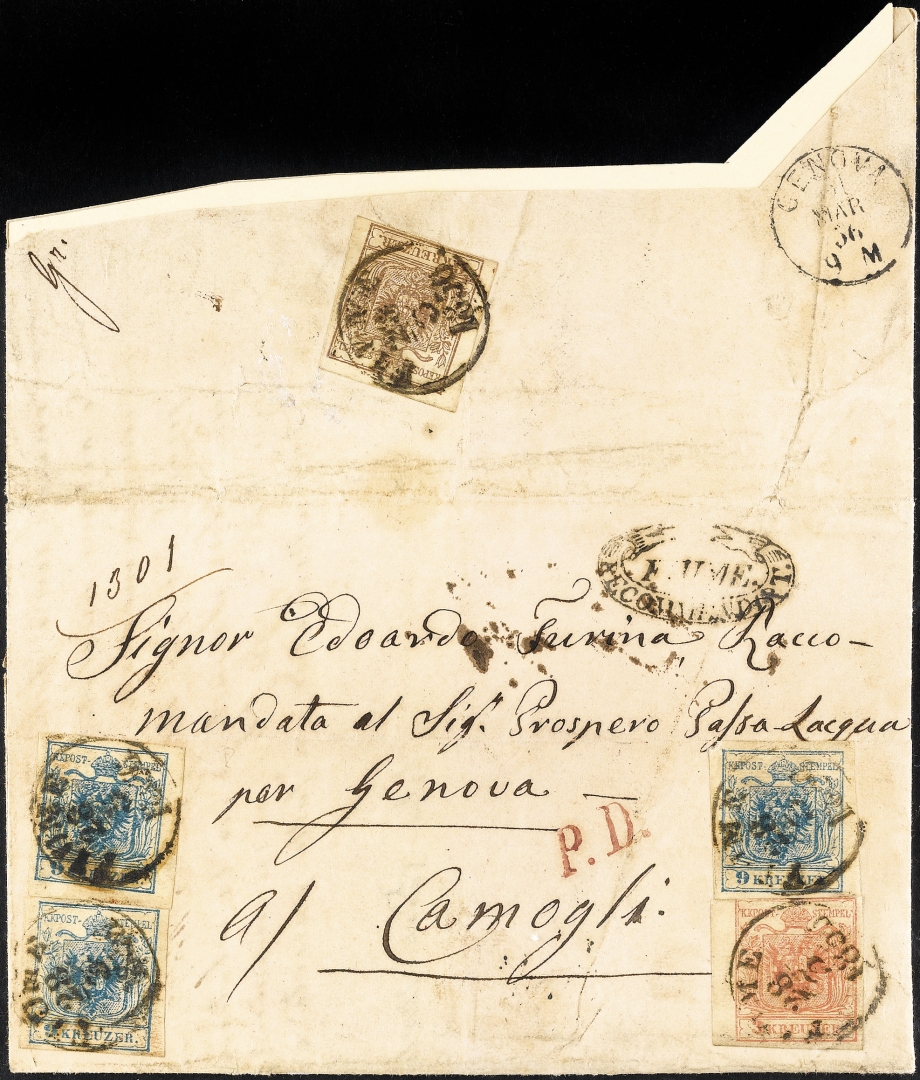 GENOVA
MAR
56
9 M
Gr.
KREUZER
1301
FIUME.
RECOMMENDIRT
Signor Edoardo Furina Racco-
mandata al Sigr. Prospero Passa Lacqua
per Genova —
P.D.
a/ Camogli.
KKPOST-STEMPEL
9 KREUZER.
KKPOST-STEMPEL
9 KREUZER.
KKPOST-STEMPEL
9 KREUZER.
KKPOST-STEMPEL
3 KREUZER.